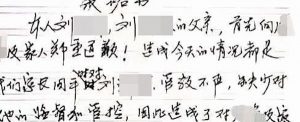 本人刘 刘 的父亲，首先向
及家人郑重道歉！造成今天的情况都是
们家长周平时对刘 管教不严，缺少对
他的监督和管控，因此造成了对 及家